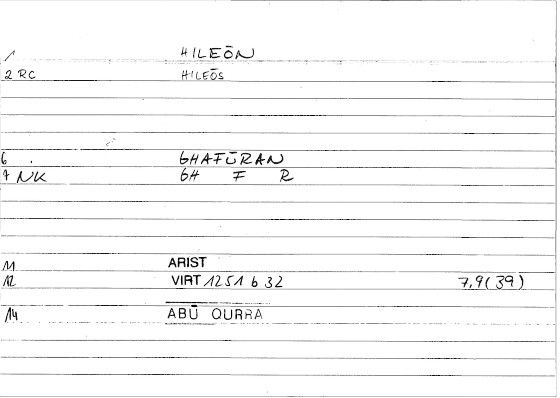 1 HILEŌN
2 RC HILEŌS
6 GHAFŪRAN
7 NK GH F R
11 ARIST
12 VIRT 1251 b 32 7,9(39)
14 ABŪ QURRA